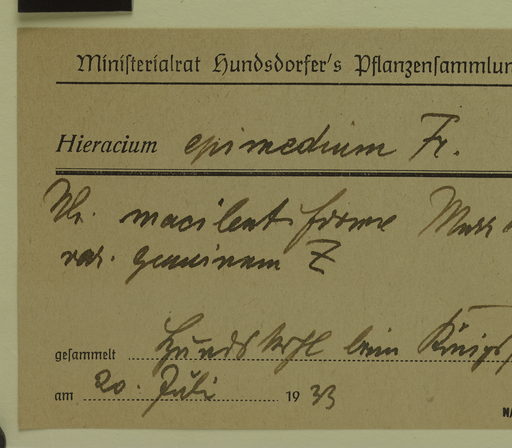 Ministerialrat Hundsdorfer's Pflanzensammlun
Hieracium epimedium Fr.
macilentiforme Murr
var. genuinum Z
gesammelt Hundskehl beim Königs
am 20. Juli 1933